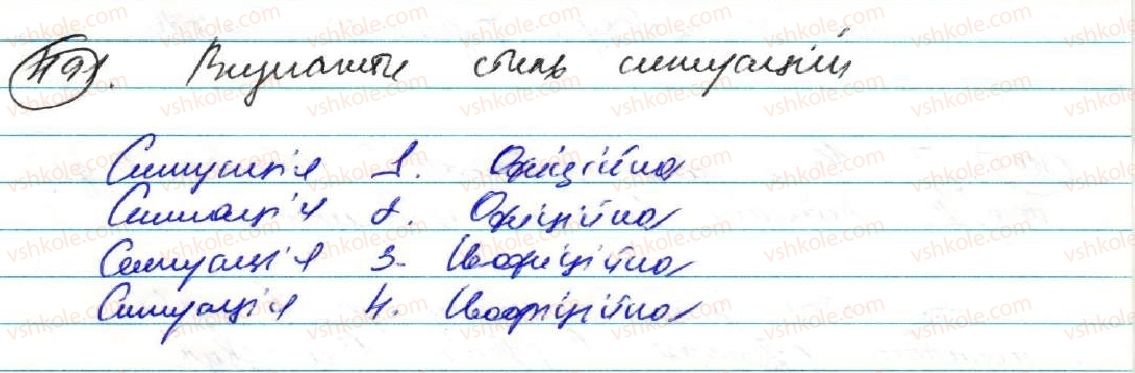 491. Визначте стиль ситуацій
Ситуація 1. Офіційна
Ситуація 2. Офіційна
Ситуація 3. Неофіційна
Ситуація 4. Неофіційна
vshkole.com